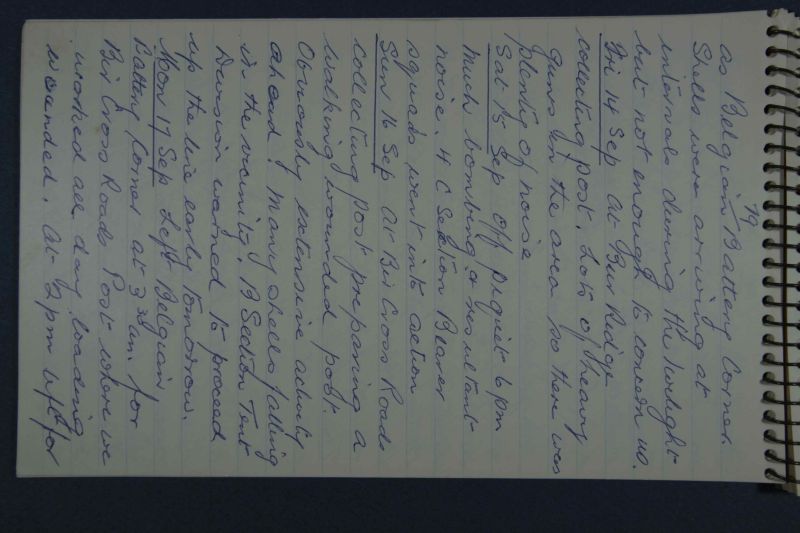 79
as Belgian Battery Corner.
Shells were arriving at
intervals during the twilight
but not enough to concern us.
Fri 14 Sep At Bir Ridge
collecting post. Lots of heavy
guns in the area so there was
plenty of noise
Sat 15 Sep off piquet 6 pm
much bombing & resultant
noise. 4 C Section Bearer
squads went into action
Sun 16 Sep At Bir Cross Roads
collecting post preparing a
walking wounded post
Obviously extensive activity
ahead. Many shells falling
in the vicinity. B Section Tent
Division warned to proceed
up the line early tomorrow.
Mon 17 Sep Left Belgian
Battery Corner at 3 am for
Bir Cross Roads Post where we
worked all day loading
wounded. At 2 pm left for